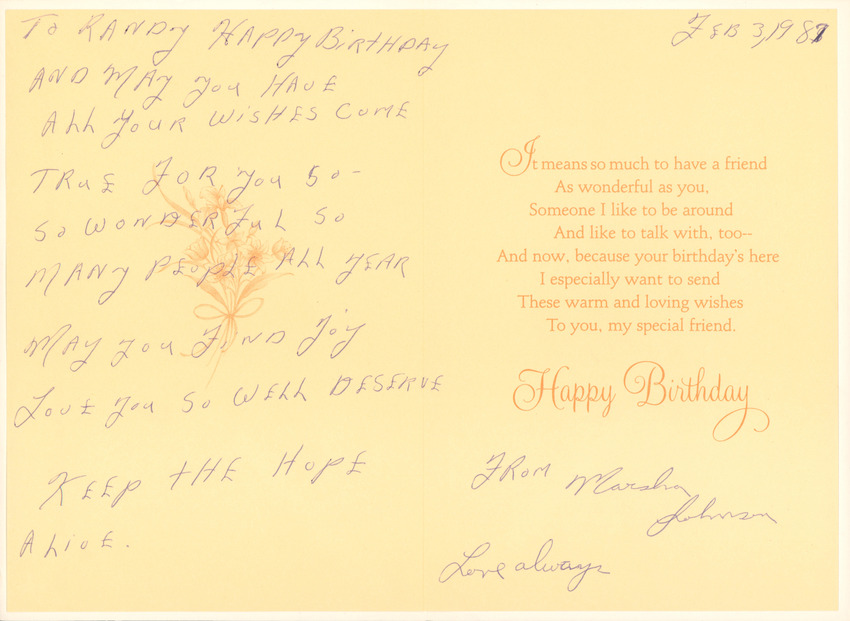 To RANDY HAPPY BirTHDAY
AND MAY you HAVE
ALL your WiSHES COME
TRuE FOR you so-
So WONDERFuL So
MANY PEOPLE ALL YEAR
MAY you FiND Joy
LovE you So WELL DESERVE
KEEP tHE HOPE
ALiVE.
FEB 3, 1987
It means so much to have a friend
As wonderful as you,
Someone I like to be around
And like to talk with, too--
And now, because your birthday's here
I especially want to send
These warm and loving wishes
To you, my special friend.
Happy Birthday
FROM Marsha
Johnson
Love always